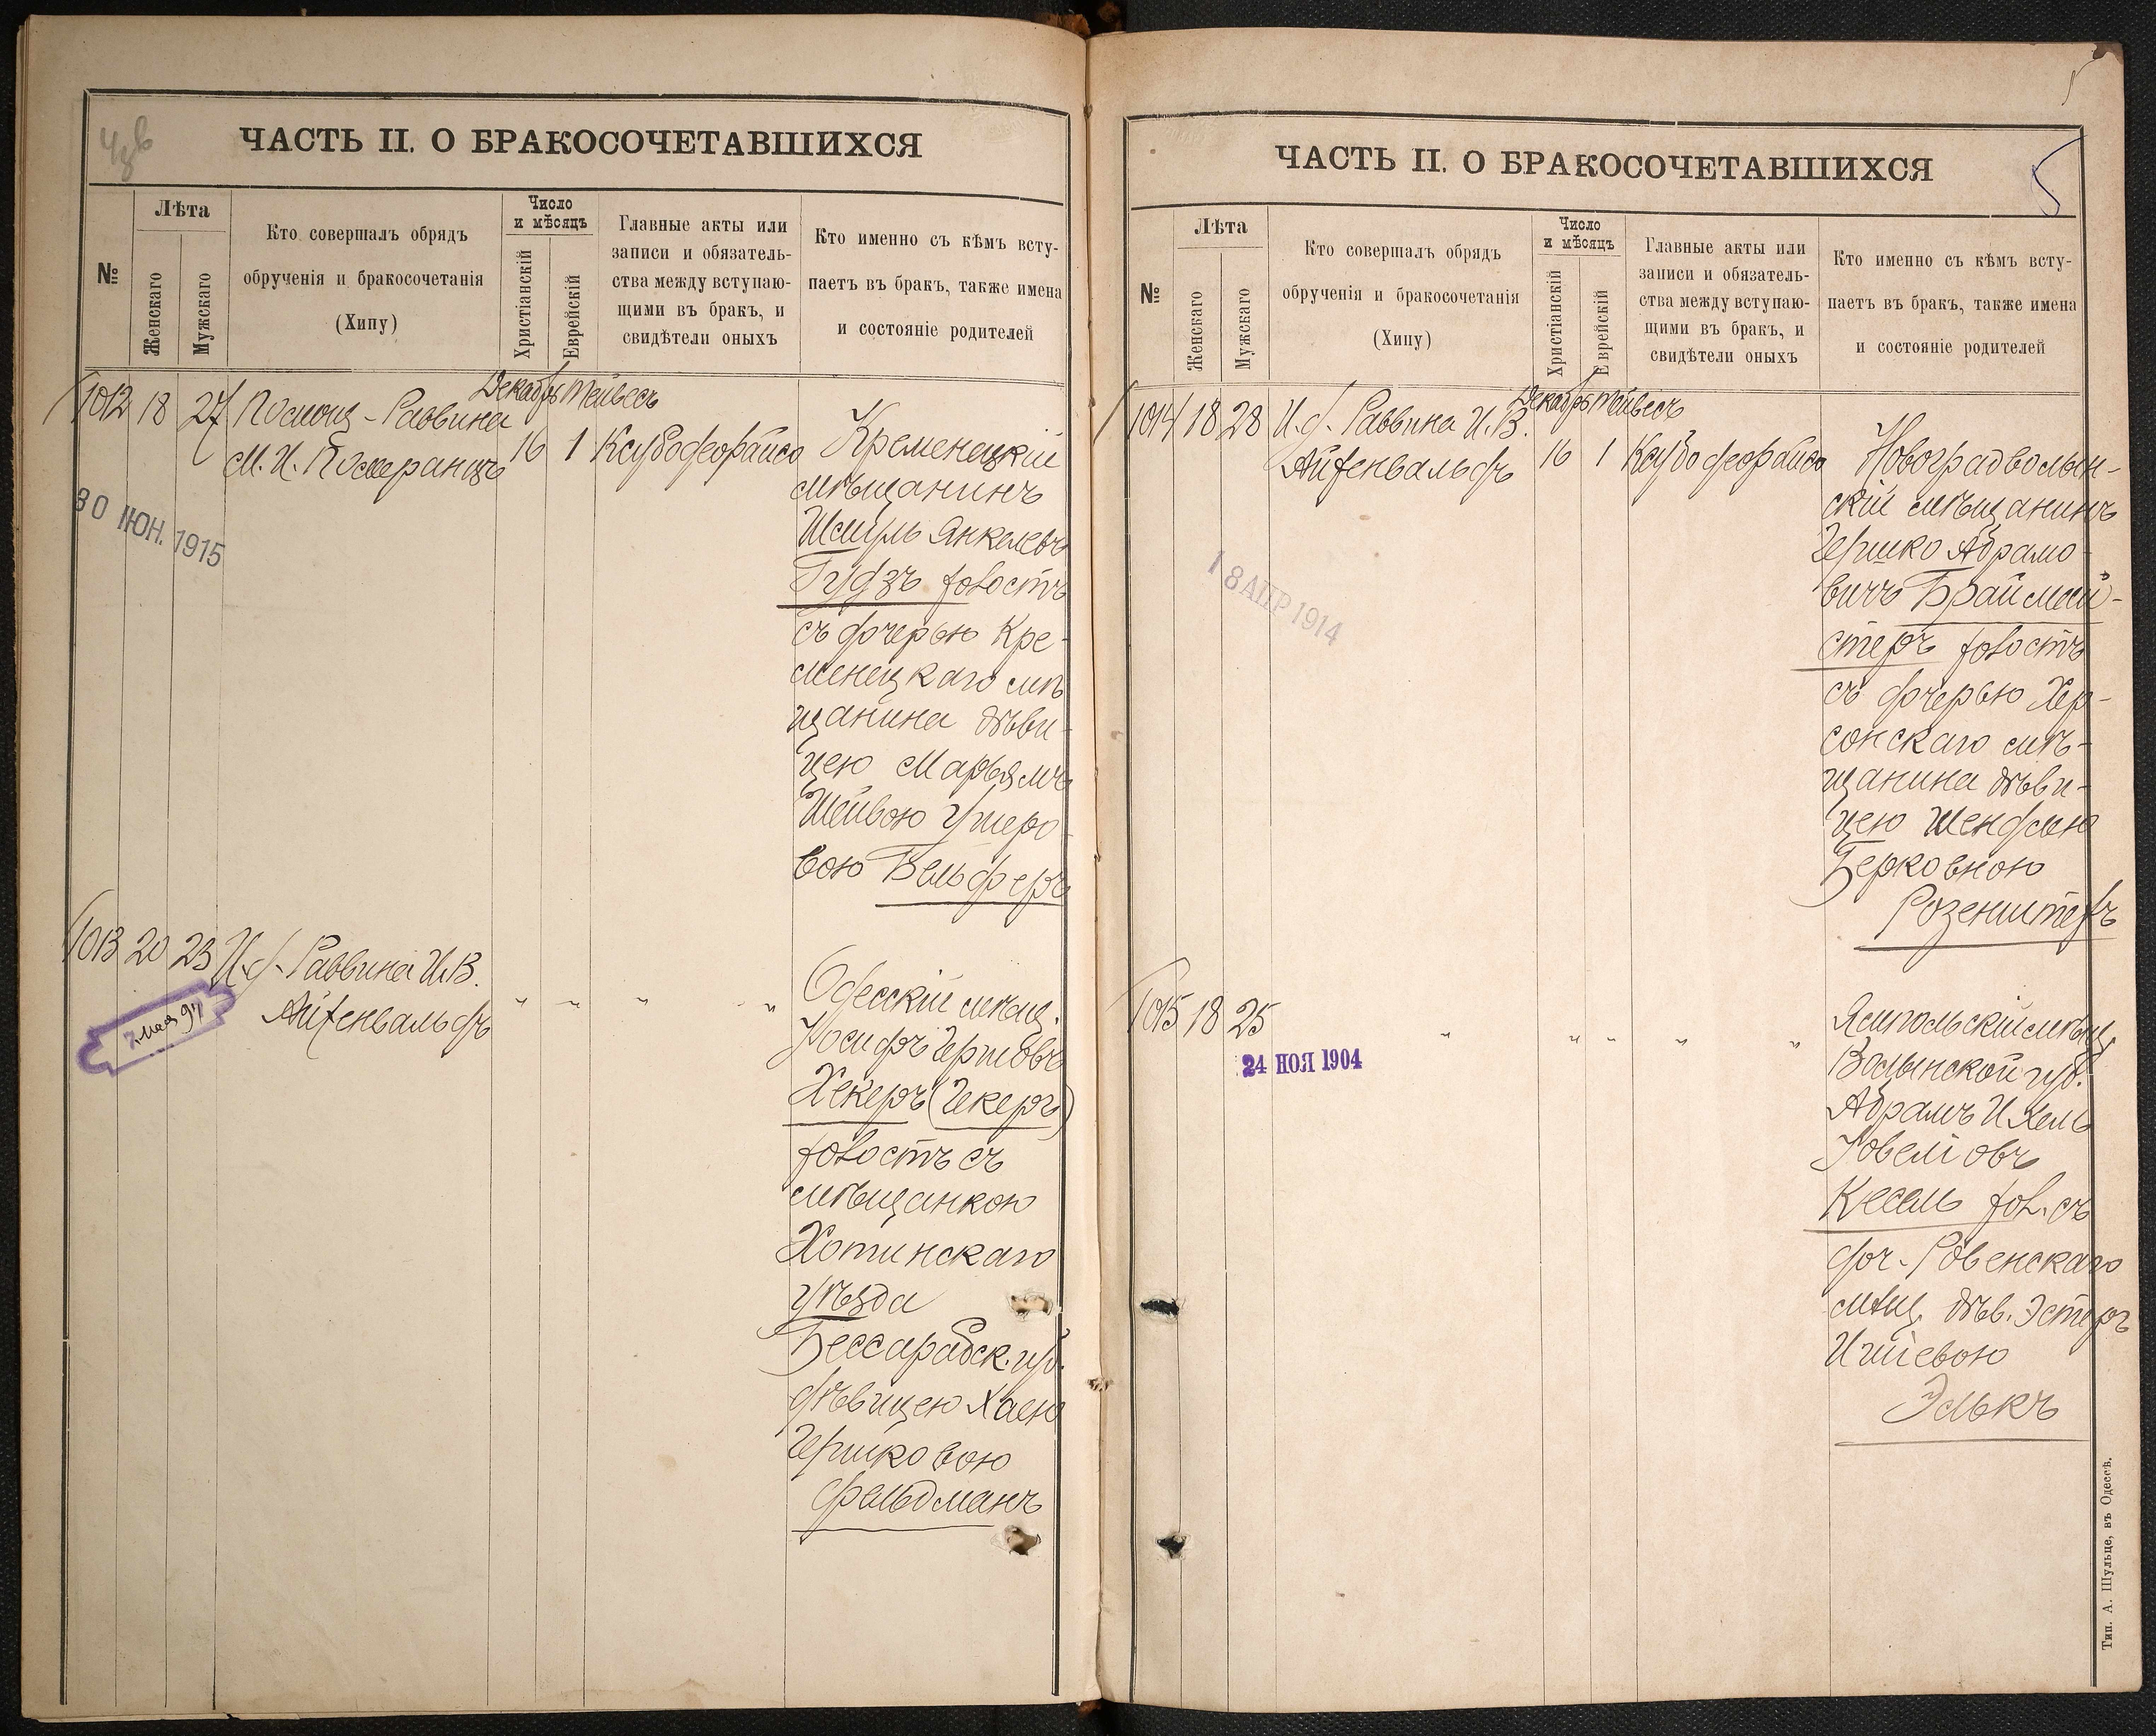 ЧАСТЬ II. О БРАКОСОЧЕТАВШИХСЯ
№
Лѣта
Женскаго
Мужскаго
Кто совершалъ обрядъ
обрученія и бракосочетанія
(Хипу)
Число
и мѣсяцъ
Христіанскій
Еврейскій
Главные акты или
записи и обязатель-
ства между вступаю-
щими въ бракъ, и
свидѣтели оныхъ
Кто именно съ кѣмъ всту-
паетъ въ бракъ, также имена
и состояніе родителей
1012 18 27 Помощ-Раввина
М. И. Померанцъ
Декабрь Тейвесъ
16 1 Ксубофорайсо
Кременецкій
мѣщанинъ
Шмуль Янкелевъ
Гудзъ холостъ
съ дочерью Кре-
менецкаго мѣ
щанина дѣви-
цею Марьямъ
Шейвою Ушеро-
вою Вельдферъ
30 ІЮН. 1915
1013 20 23 И. д. Раввина И. В.
Айзенвальдъ
" " " "
7 мая 94
Одесскій мѣщ.
Іосифъ Гершовъ
Хекеръ (Гекеръ)
холостъ съ
мѣщанкою
Хотинскаго
уѣзда
Бессарабск. губ.
дѣвицею Хаею
Гершковою
Фельдманъ
ЧАСТЬ II. О БРАКОСОЧЕТАВШИХСЯ
5
№
Лѣта
Женскаго
Мужскаго
Кто совершалъ обрядъ
обрученія и бракосочетанія
(Хипу)
Число
и мѣсяцъ
Христіанскій
Еврейскій
Главные акты или
записи и обязатель-
ства между вступаю-
щими въ бракъ, и
свидѣтели оныхъ
Кто именно съ кѣмъ всту-
паетъ въ бракъ, также имена
и состояніе родителей
1014 18 28 И. д. Раввина И. В.
Айзенвальдъ
Декабрь Тейвесъ
16 1 Ксубофорайсо
Новоградволын-
скій мѣщанинъ
Гершко Абрамо-
вичъ Браймей-
стеръ холостъ
съ дочерью Хер-
сонскаго мѣ-
щанина дѣви-
цею Шендлею
Берковною
Розенштехъ
18 АПР 1914
1015 18 25
" " " " "
24 НОЯ 1904
Ямпольскій мѣщ.
Волынской губ.
Абрамъ Ихель
Іовеліовъ
Кесель хол. съ
доч. Ровенскаго
мѣщ. дѣв. Эстеръ
Иційевою
Элькъ
Тип. А. Шульце, въ Одессѣ.